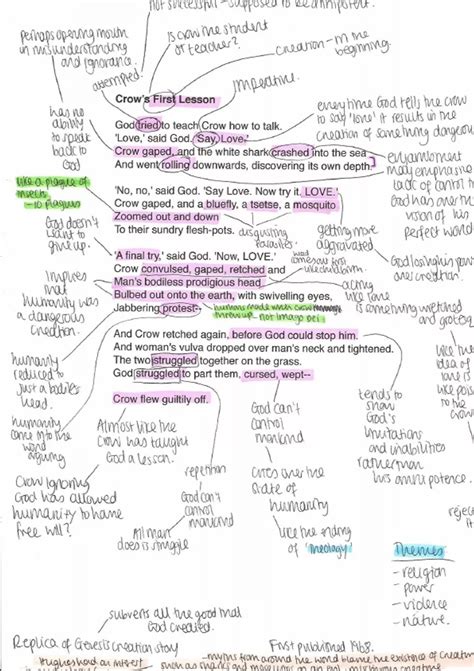 not successful - supposed to be omnipotent.
perhaps opening mouth
in misunderstanding
and ignorance.
is crow the student
or teacher?
creation - in the
beginning.
attempted.
imperative.
Crow's First Lesson
has no
ability
to speak
back to
God
God tried to teach Crow how to talk.
'Love,' said God. 'Say, Love.'
Crow gaped, and the white shark crashed into the sea
And went rolling downwards, discovering its own depth.
everytime God tells the crow
to say 'love' it results in the
creation of something dangerous
enjambment
may emphasise
lack of control
God has over the
vision of his
perfect world
like a plague of
insects
- 10 plagues
'No, no,' said God. 'Say Love. Now try it. LOVE.'
Crow gaped, and a bluefly, a tsetse, a mosquito
Zoomed out and down
To their sundry flesh-pots.
disgusting
parasites.
getting more
aggravated
God doesn't
want to
give up.
God losing his
over creation.
'A final try,' said God. 'Now, LOVE.'
Crow convulsed, gaped, retched and
Man's bodiless prodigious head
Bulbed out onto the earth, with swivelling eyes,
Jabbering protest--
implies
that
humanity was
a dangerous
creation.
humans made with crow
throw up - not imago dei
is something wretched
and
And Crow retched again, before God could stop him.
And woman's vulva dropped over man's neck and tightened.
The two struggled together on the grass.
God struggled to part them, cursed, wept--
Crow flew guiltily off.
humanity
reduced to
just a bodiless
head.
like the
idea of
love is
like
to the
crow
humanity
come into the
world
arguing
Almost like the
Crow has taught
God a lesson.
God can't
control
mankind
tends to
show
God's
limitations
and inabilities
rather than
his omnipotence.
Crow ignoring
God has allowed
humanity to have
free will?
repetition
God can't
control
mankind
cries over the
state of
humanity
All man
does is struggle
like the ending
of 'theology'
Themes
- religion
- power
- violence
- nature.
subverts all the good that
God created.
Replica of Genesis creation story
First published 1968.
- myths from around the world have the existence of